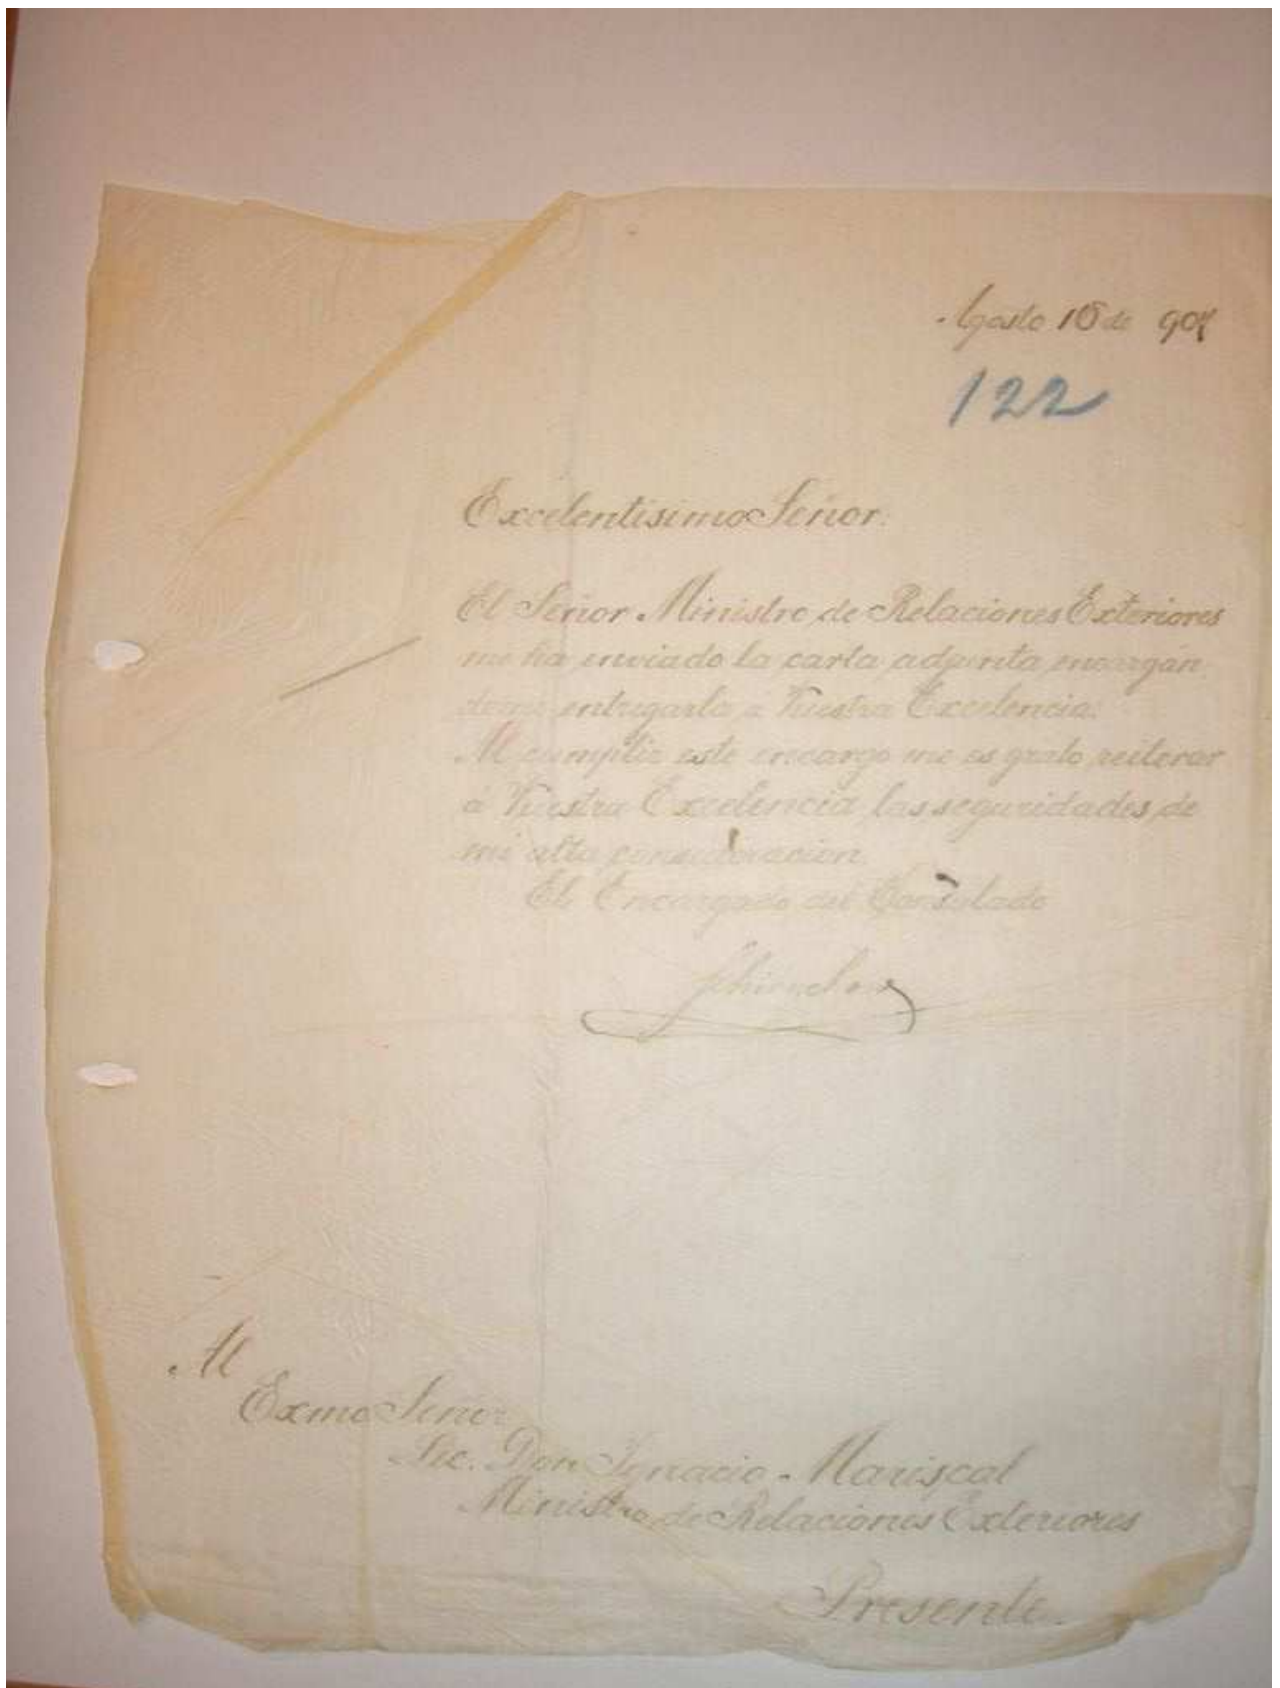 Agosto 10 de 907
122
Excelentisimo Señor:
El Señor Ministro de Relaciones Exteriores
me ha enviado la carta adjunta, encargán
dome entregarla a Vuestra Excelencia.
Al cumplir este encargo me es grato reiterar
á Vuestra Excelencia las seguridades de
mi alta consideracion.
El Encargado del Consulado
Al
Exmo Señor
Lic. Don Ignacio Mariscal
Ministro de Relaciones Exteriores
Presente.